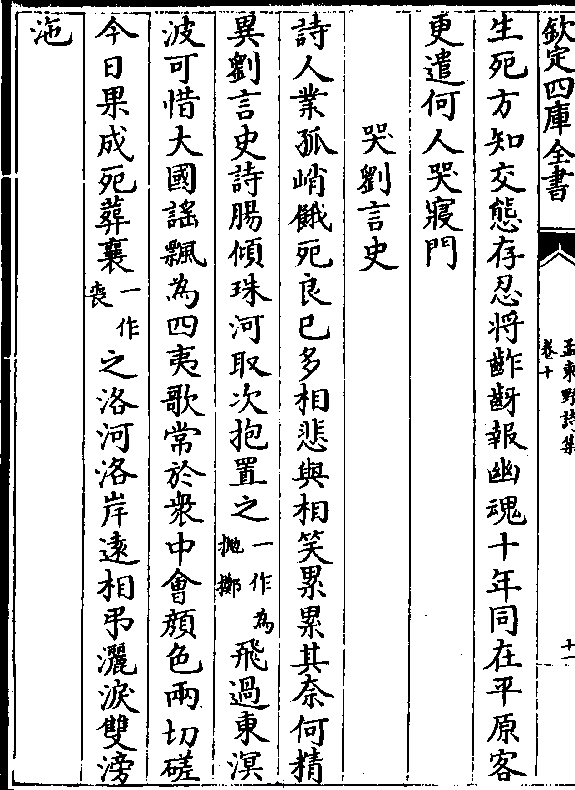 欽定四庫全書
孟東野詩集
卷十
十一
生死方知交態存忍將齚齖報幽魂十年同在平原客
更遣何人哭寢門
哭劉言史
詩人業孤峭餓死良已多相悲與相笑累累其奈何精
異劉言史詩腸傾珠河取次抱置之一作為拋擲飛過東溟
波可惜大國謠飄為四夷歌常於衆中會顔色兩切磋
今日果成死葬襄一作喪之洛河洛岸遠相弔灑淚雙滂
沲